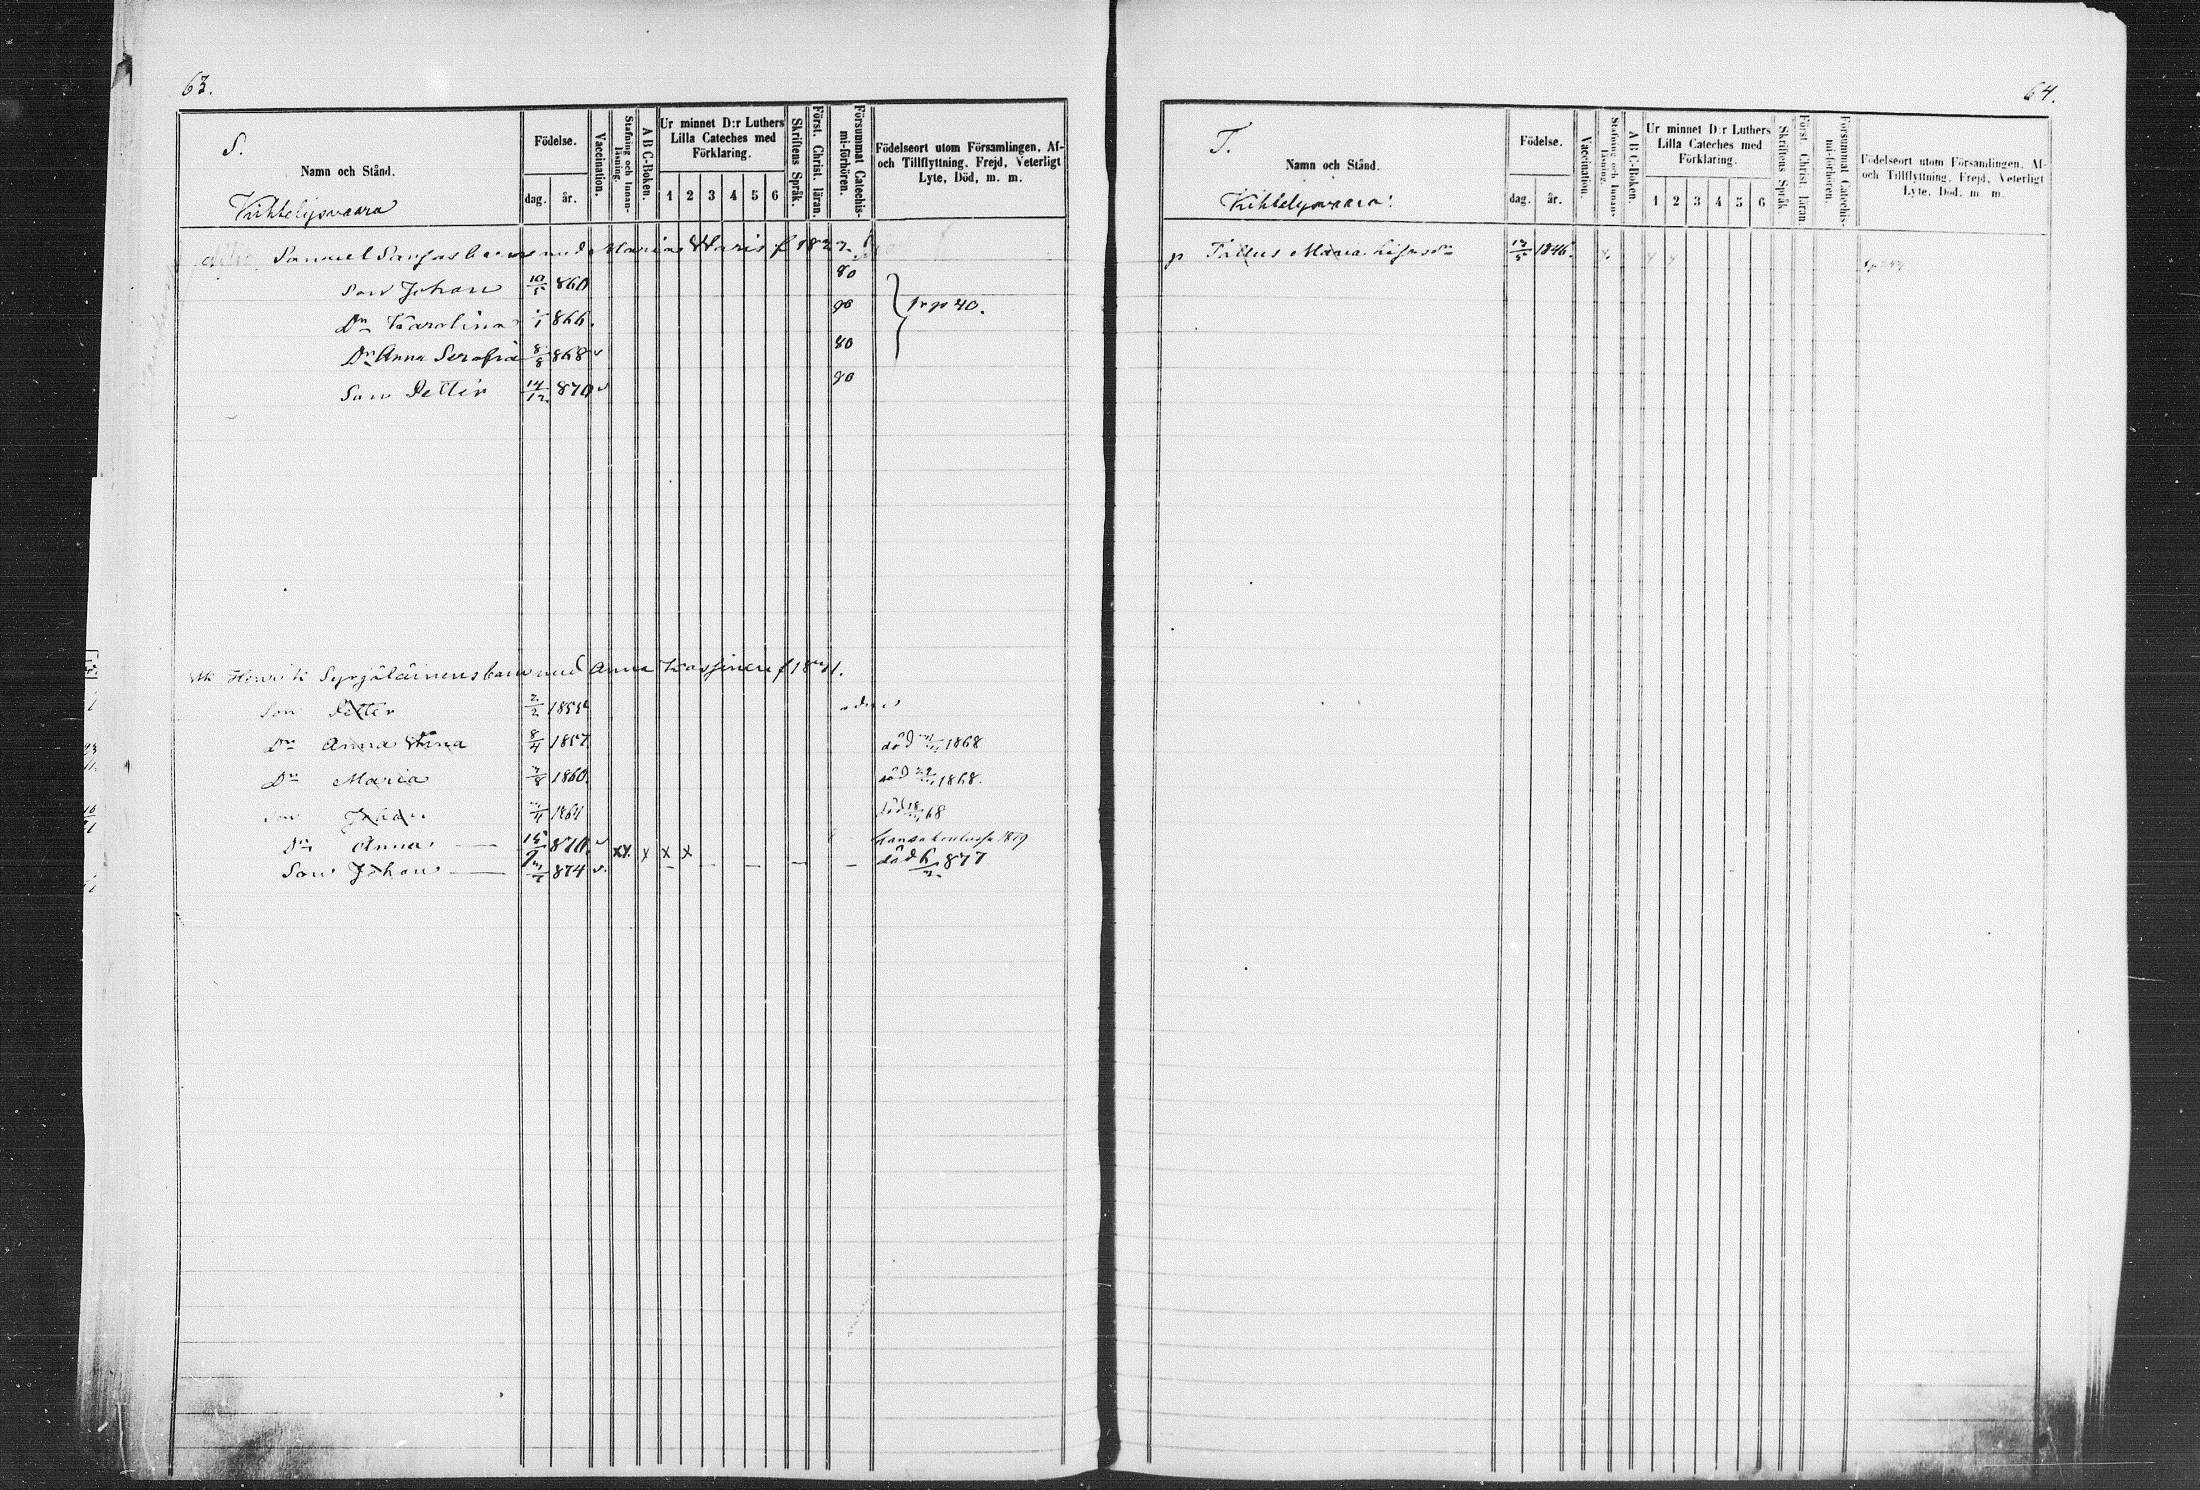 63.
S.
Namn och Stånd.
Kihtelysvaara
Födelse.
dag. år.
Vaccination.
Stafning och Innanläsning.
A B C-Boken.
Ur minnet D:r Luthers Lilla Cateches med Förklaring.
1 2 3 4 5 6
Skriftens Språk.
Först. Christ. läran.
Försummat Catechismi-förhören.
Födelseort utom Församlingen, Af- och Tillflyttning, Frejd, Veterligt Lyte, Död, m. m.
Samuel barn med Maria f 182
Son Johan 10/5 860 80
Dr Karolina 866. 90 40.
Dr Anna Serafia 8/8 868 v 80
Son Petter 14/12 870 v 90
Henrik Syrjäläinens barn med Anna f 18
Son Petter 2/2 185
Dr Anna Stina 8/4 1857 död 1868
Dr Maria 1860. död 1868.
Son Johan 1864 död 18 68
Dr Anna — 870. v xx x x x
Son Johan — 874 v. död 6 877
64.
T.
Namn och Stånd.
Kihtelysvaara.
Födelse.
dag. år.
Vaccination.
Stafning och Innanläsning.
A B C-Boken.
Ur minnet D:r Luthers Lilla Cateches med Förklaring.
1 2 3 4 5 6
Skriftens Språk.
Först. Christ. läran
Försummat Catechismi-förhören.
Födelseort utom Församlingen, Af- och Tillflyttning, Frejd, Veterligt Lyte, Död, m. m.
p Maria 1846.